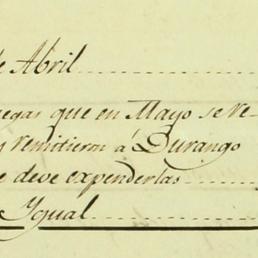 de Abril
negas que en Mayo se ve-
y remitieron á Durango
e deve expenderlas
Ygual